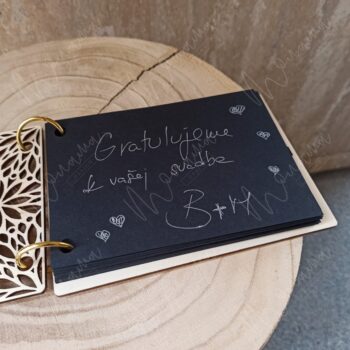 Gratulujeme
k vašej svadbe
B+M